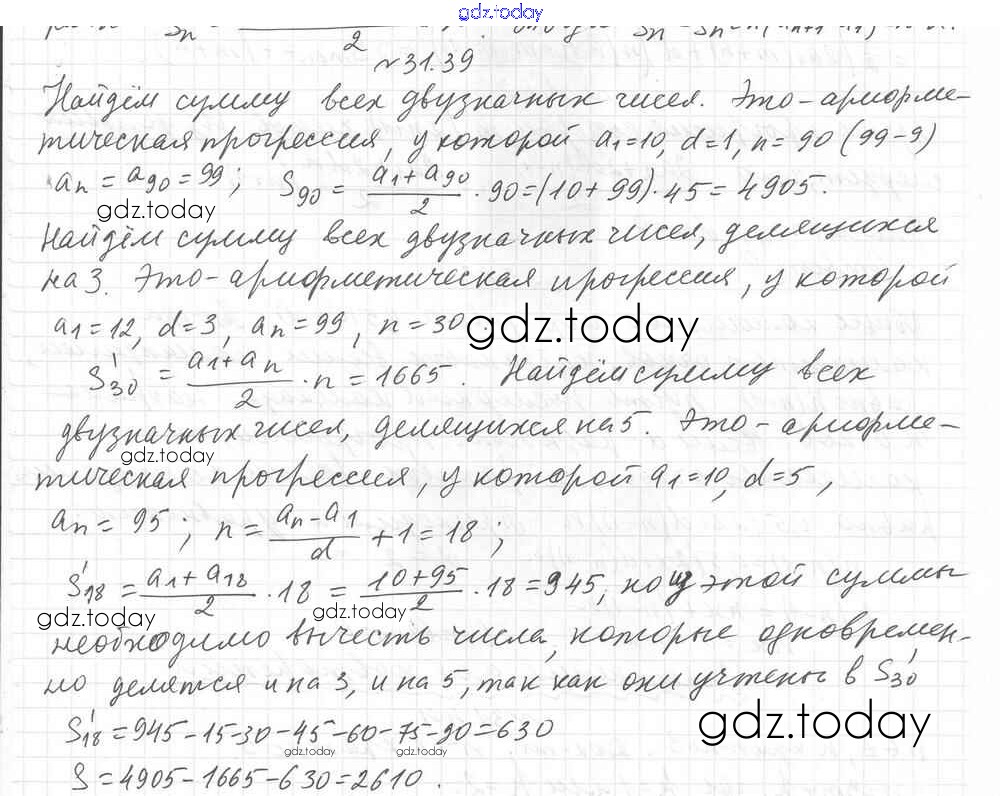 gdz.today
S_n = 2
№31.39
Найдём сумму всех двузначных чисел. Это - арифме-
тическая прогрессия, у которой a₁=10, d=1, n=90 (99-9)
aₙ = a₉₀ = 99; S₉₀ = (a₁+a₉₀)/2 · 90 = (10+99)·45 = 4905.
gdz.today
Найдём сумму всех двузначных чисел, делящихся
на 3. Это - арифметическая прогрессия, у которой
a₁=12, d=3, aₙ=99, n=30.
gdz.today
S'₃₀ = (a₁+aₙ)/2 · n = 1665. Найдём сумму всех
двузначных чисел, делящихся на 5. Это - арифме-
gdz.today
тическая прогрессия, у которой a₁=10, d=5,
aₙ = 95; n = (aₙ-a₁)/d + 1 = 18;
S'₁₈ = (a₁+a₁₈)/2 · 18 = (10+95)/2 · 18 = 945, но из этой суммы
gdz.today gdz.today
необходимо вычесть числа, которые одновремен-
но делятся и на 3, и на 5, так как они учтены в S'₃₀
S'₁₈ = 945-15-30-45-60-75-90 = 630
gdz.today
gdz.today gdz.today
S = 4905-1665-630 = 2610.